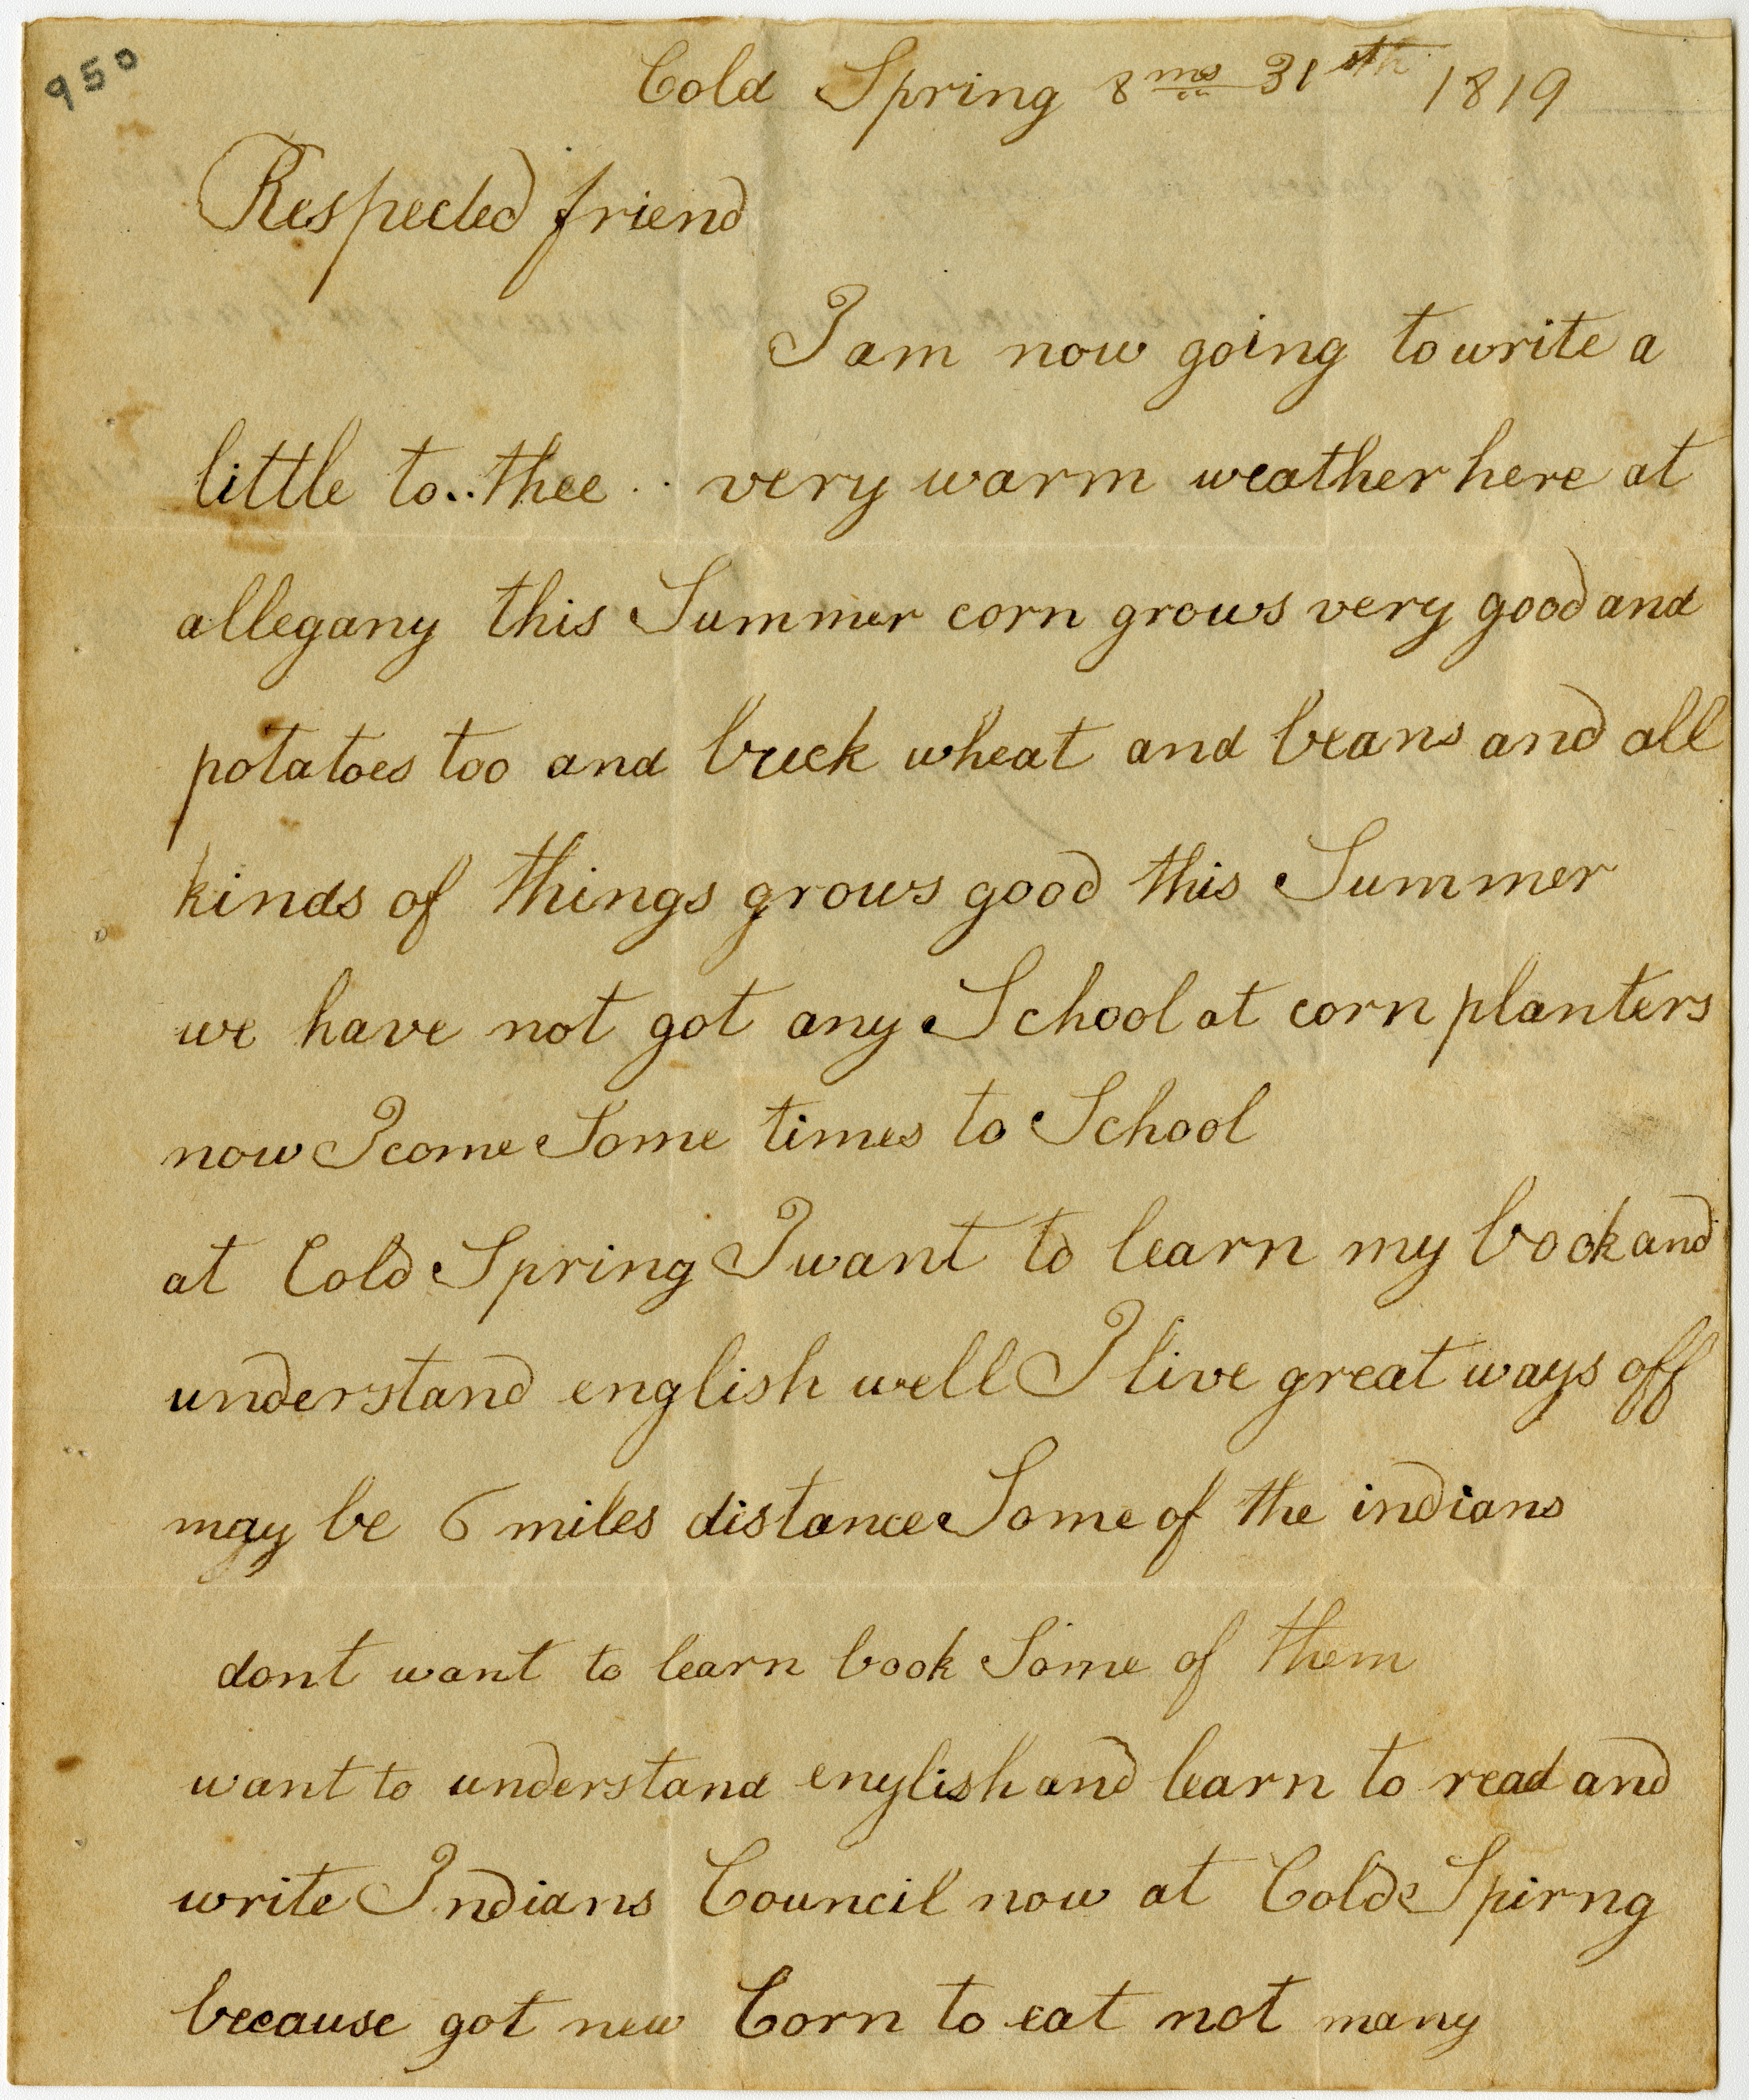 950
Cold Spring 8mo 31st 1819
Respected friend
I am now going to write a
little to.. thee .. very warm weather here at
allegany this Summer corn grows very good and
potatoes too and buck wheat and beans and all
kinds of things grows good this Summer
we have not got any School at corn planters
now I come Some times to School
at Cold Spring I want to learn my book and
understand english well I live great ways off
may be 6 miles distance Some of the indians
dont want to learn book Some of them
want to understand english and learn to read and
write Indians Council now at Cold Spirng
because got new Corn to eat not many